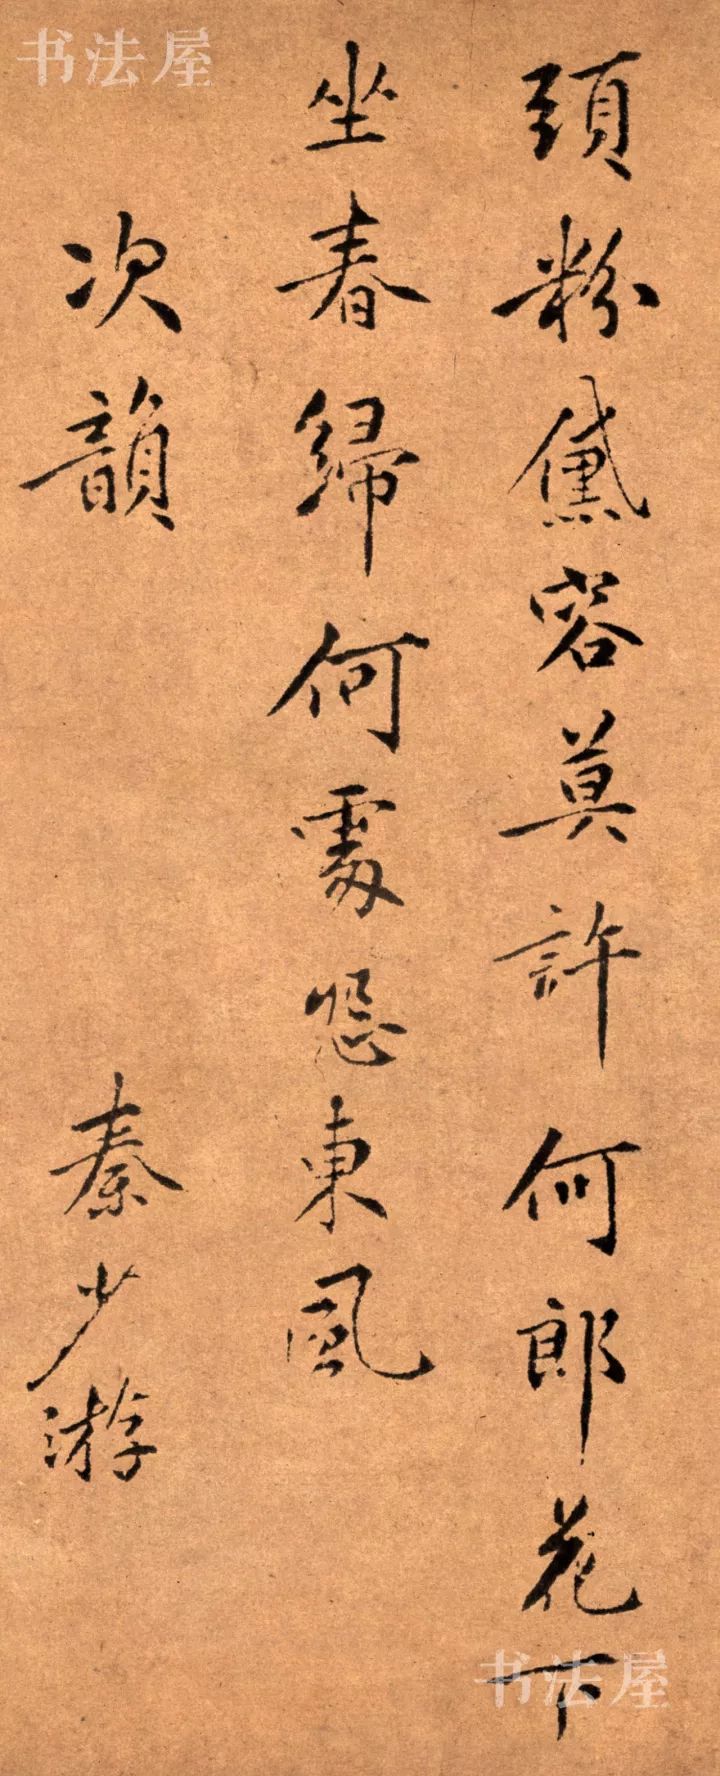 书法屋
頭粉黛容莫許何郎花下
坐春歸何處怨東風
次韻 秦少游
书法屋